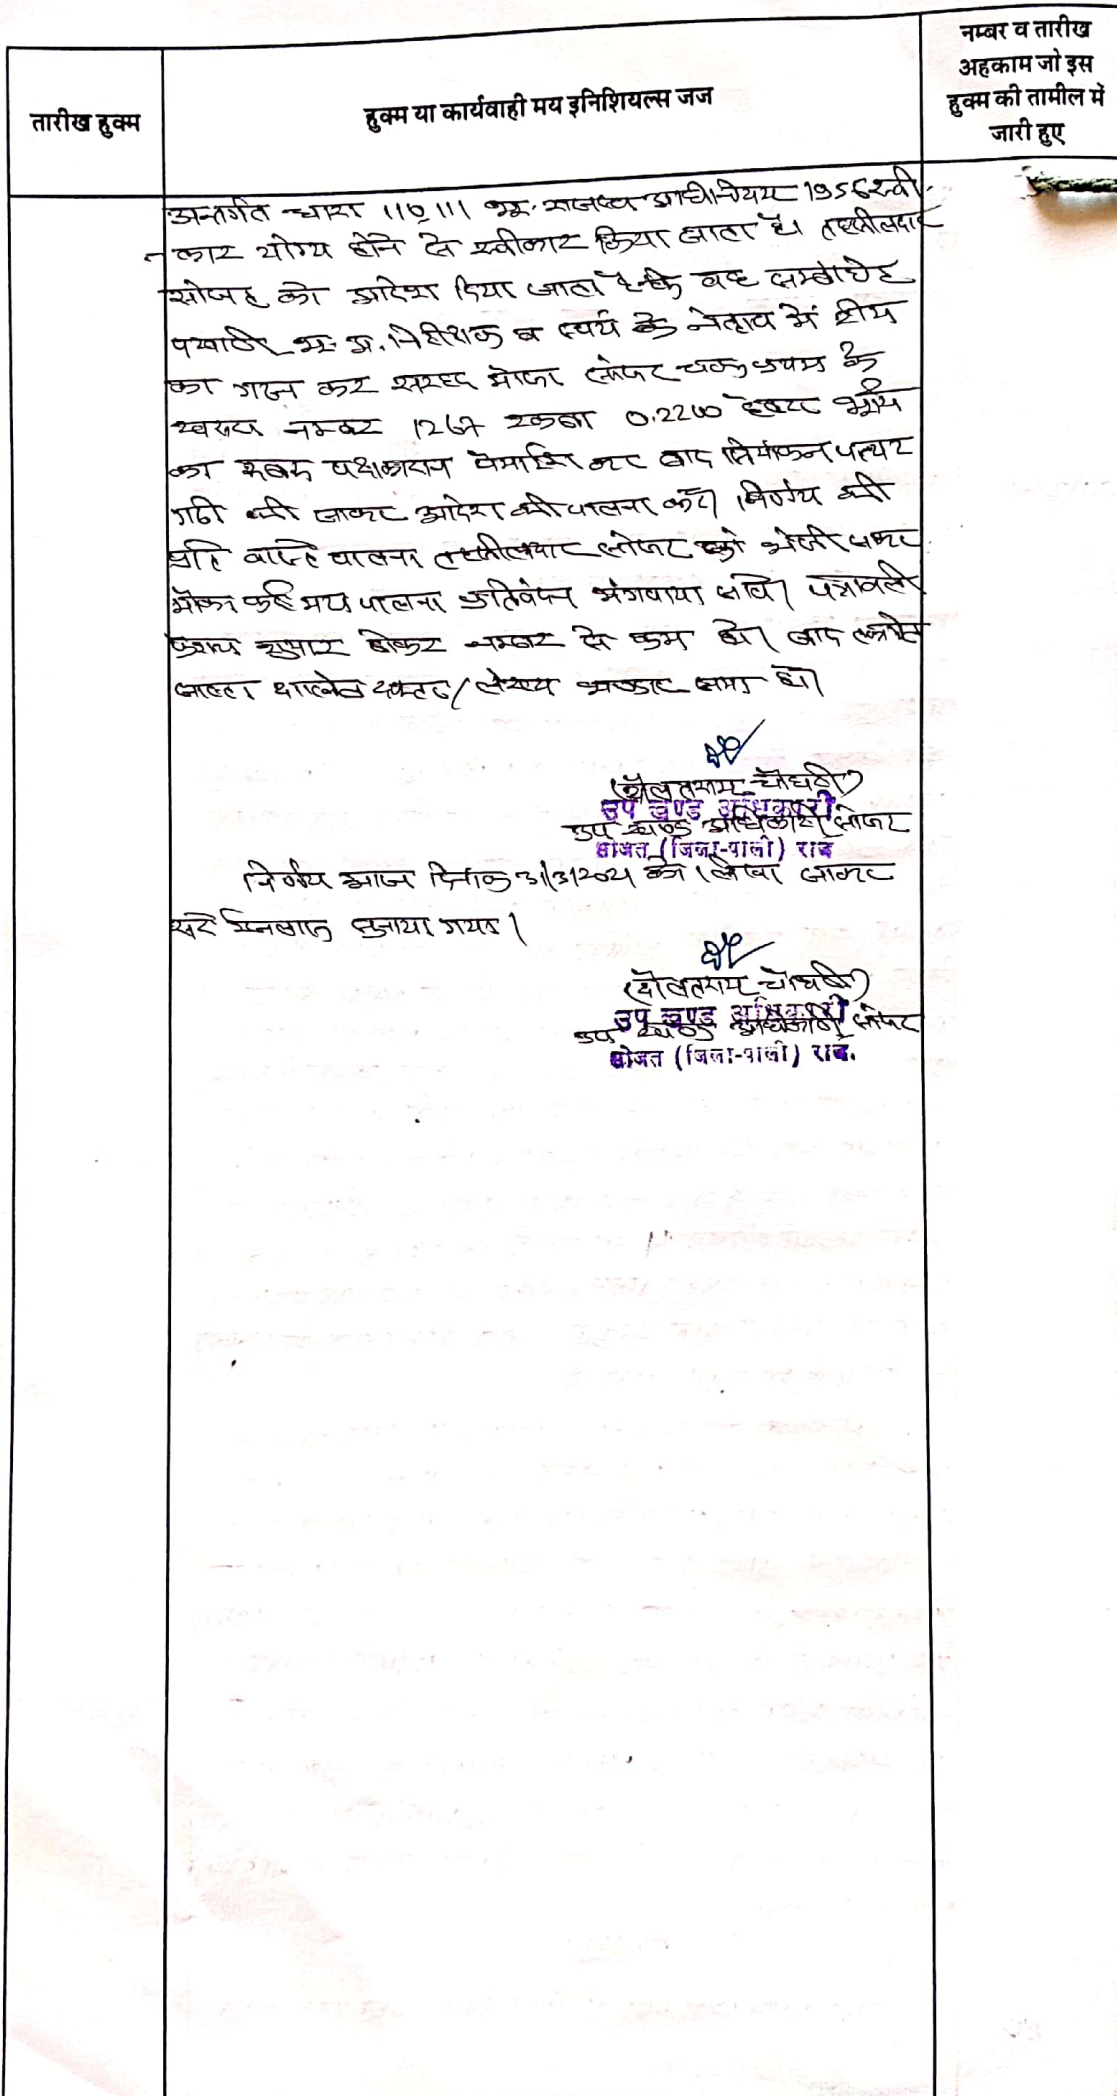 तारीख हुक्म
हुक्म या कार्यवाही मय इनिशियल्स जज
नम्बर व तारीख
अहकाम जो इस
हुक्म की तामील में
जारी हुए
अन्तर्गत धारा 110, 111 भू. राजस्व अधिनियम 1956 स्वी-
-कार योग्य होने से स्वीकार किया जाता है। तहसीलदार
सोजत को आदेश दिया जाता है कि वह सम्बंधित
पटवारी, भू. अ. निरीक्षक व स्वयं के नेतृत्व में टीम
का गठन कर सरहद मौजा सोजत चक प्रथम के
खसरा नम्बर 1267 रकबा 0.2200 हेक्टर भूमि
का रूबरू पक्षकारान पैमाईश कर बाद सीमांकन पत्थर
गढी की जाकर आदेश की पालना करें। निर्णय की
प्रति वास्ते पालना तहसीलदार सोजत को भेजी जाकर
मौका फर्द मय पालना प्रतिवेदन मंगवाया जावे। पत्रावली
फैसल शुमार होकर नम्बर से कम हो। बाद तकमील
जाब्ता दाखिल दफ्तर/लेख्य भण्डार जमा हो।
(दौलतराम चौधरी)
उप खण्ड अधिकारी
उप खण्ड अधिकारी सोजत
सोजत (जिला-पाली) राज
निर्णय आज दिनांक 31/3/2021 को लिखा जाकर
सरे ईजलास सुनाया गया।
(दौलतराम चौधरी)
उप खण्ड अधिकारी
उप खण्ड अधिकारी सोजत
सोजत (जिला-पाली) राज.